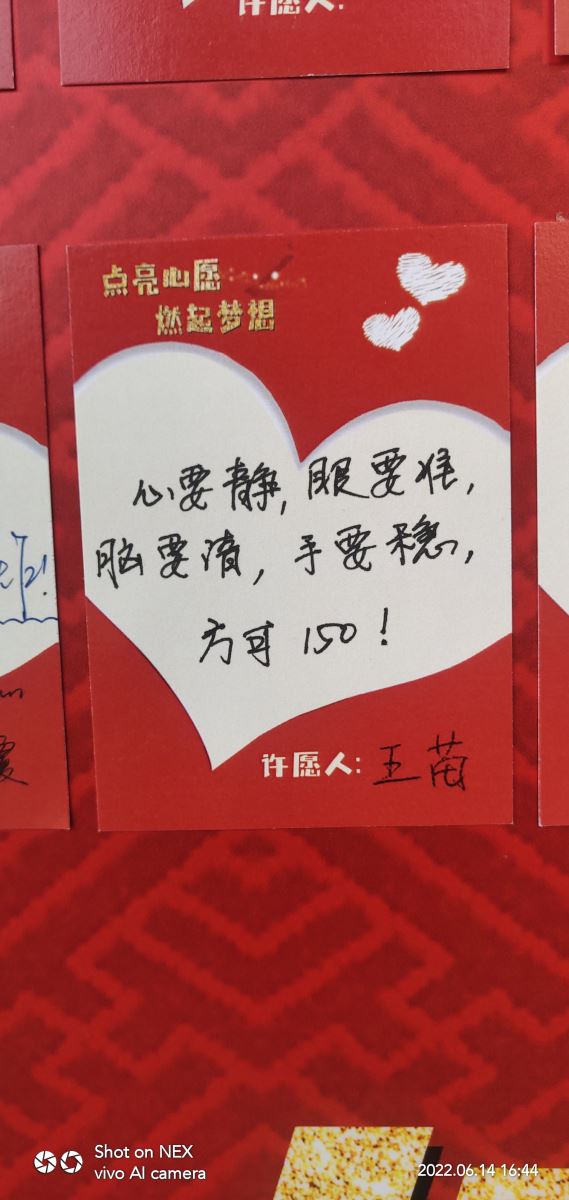 许愿人:
点亮心愿
燃起梦想
心要静,眼要准,
脑要清,手要稳,
方可150!
许愿人:王苗
Shot on NEX
vivo AI camera
2022.06.14 16:44